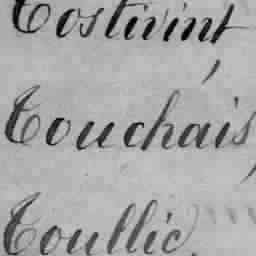 Tostivint,
Touchais,
Toullic.